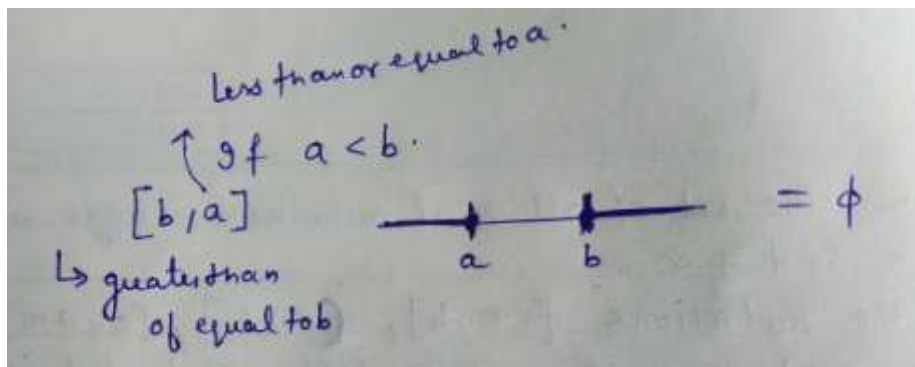 Less than or equal to a.
If a < b.
[b, a]
= ϕ
a b
↳ greater than
of equal to b